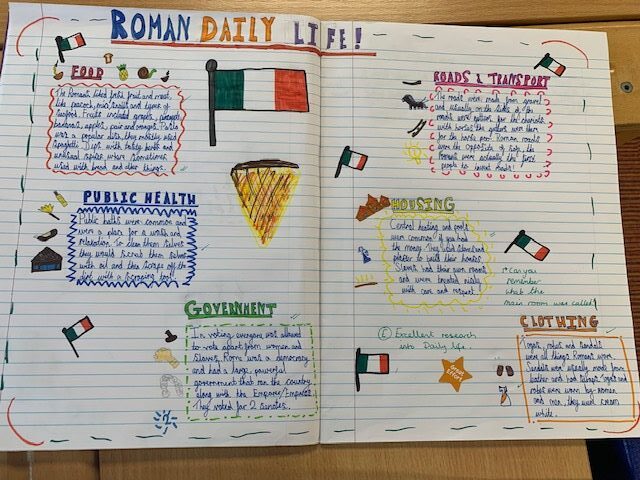 ROMAN DAILY LIFE!
FOOD
The Romans liked both fruit and meat,
like peacock, mice, snail and types of
seafood. Fruits included grapes, pineapple,
bananas, apples, pair and oranges. Pasta
was a popular dish, they mostly used
spaghetti. Dips with tasty herbs and
unusual spices were sometimes
used with bread and other things.
PUBLIC HEALTH
Public baths were common and
were a place for a wash and
relaxation. To clean them selves
they would scrub them selves
with oil and then scrape off the
dirt with a scraping tool.
GOVERNMENT
In voting everyone was allowed
to vote apart from women and
slaves. Rome was a democracy
and had a large powerful
government that ran the country
along with the Emperor/Empress.
They voted for 2
ROADS & TRANSPORT
The roads were made from gravel
and usually on the sides of the
roads were gutters for the chariots
with horses the gutters were there
for the horse poo. Roman roads
were the opposite of ours the
Romans were actually the first
people to invent roads!
HOUSING
Central heating and pools
were common if you had
the money. They used stone and
plaster to build their houses.
Slaves had their own rooms
and were treated nicely
with care and respect.
*can you
remember
what the
main room was called?
Excellent research
into Daily life.
Great
Effort
CLOTHING
Togas, robes and sandals
were all things Romans wore.
Sandals were usually made from
leather and had straps. Togas and
robes were worn by women
and men, they were cream
white.